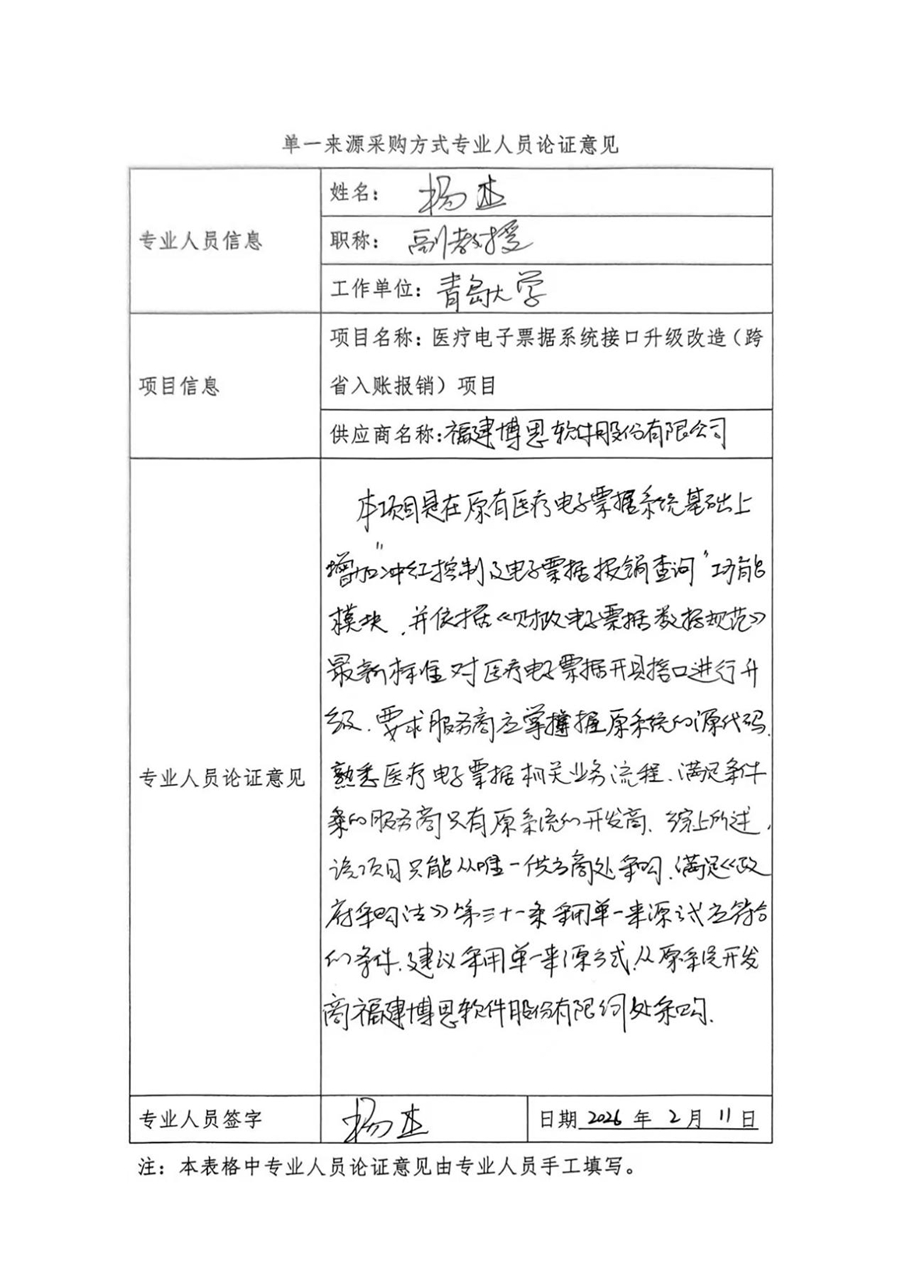 单一来源采购方式专业人员论证意见
专业人员信息
姓名：杨杰
职称：副教授
工作单位：青岛大学
项目信息
项目名称：医疗电子票据系统接口升级改造（跨
省入账报销）项目
供应商名称：福建博思软件股份有限公司
专业人员论证意见
本项目是在原有医疗电子票据系统基础上
增加“冲红控制及电子票据报销查询”功能
模块，并依据《财政电子票据数据规范》
最新标准对医疗电子票据开具接口进行升
级，要求服务商应掌握原系统的源代码，
熟悉医疗电子票据相关业务流程，满足条件
的服务商只有原系统的开发商，综上所述，
该项目只能从唯一供应商处采购，满足《政
府采购法》第三十一条采用单一来源方式应符合
的条件，建议采用单一来源方式，从原系统开发
商福建博思软件股份有限公司处采购。
专业人员签字 杨杰 日期 2026 年 2 月 11 日
注：本表格中专业人员论证意见由专业人员手工填写。